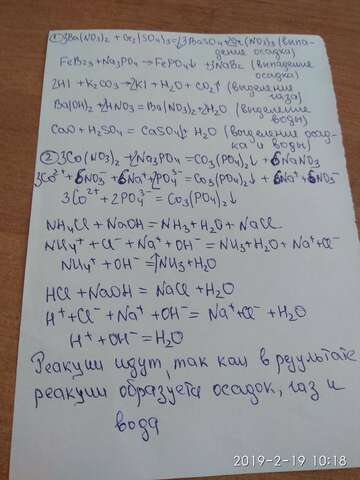 ① 3Ba(NO3)2 + Cr2(SO4)3 = ↓3BaSO4 + 2Cr(NO3)3 (выпа-
дение осадка)
FeBr3 + Na3PO4 → FePO4↓ + 3NaBr (выпадение
осадка)
2HI + K2CO3 → 2KI + H2O + CO2↑ (выделение
газа)
Ba(OH)2 + 2HNO3 = Ba(NO3)2 + 2H2O (выделение
воды)
CaO + H2SO4 = CaSO4↓ + H2O (выделение осад-
ка и воды)
② 3Co(NO3)2 + 2Na3PO4 = CO3(PO4)2↓ + 6NaNO3
3Co²⁺ + 6NO3⁻ + 6Na⁺ + 2PO4³⁻ = Co3(PO4)2↓ + 6Na⁺ + 6NO3⁻
3Co²⁺ + 2PO4³⁻ = Co3(PO4)2↓
NH4Cl + NaOH = NH3 + H2O + NaCl
NH4⁺ + Cl⁻ + Na⁺ + OH⁻ = NH3 + H2O + Na⁺ + Cl⁻
NH4⁺ + OH⁻ = ↑NH3 + H2O
HCl + NaOH = NaCl + H2O
H⁺ + Cl⁻ + Na⁺ + OH⁻ = Na⁺ + Cl⁻ + H2O
H⁺ + OH⁻ = H2O
Реакции идут, так как в результате
реакции образуется осадок, газ и
вода
2019-2-19 10:18